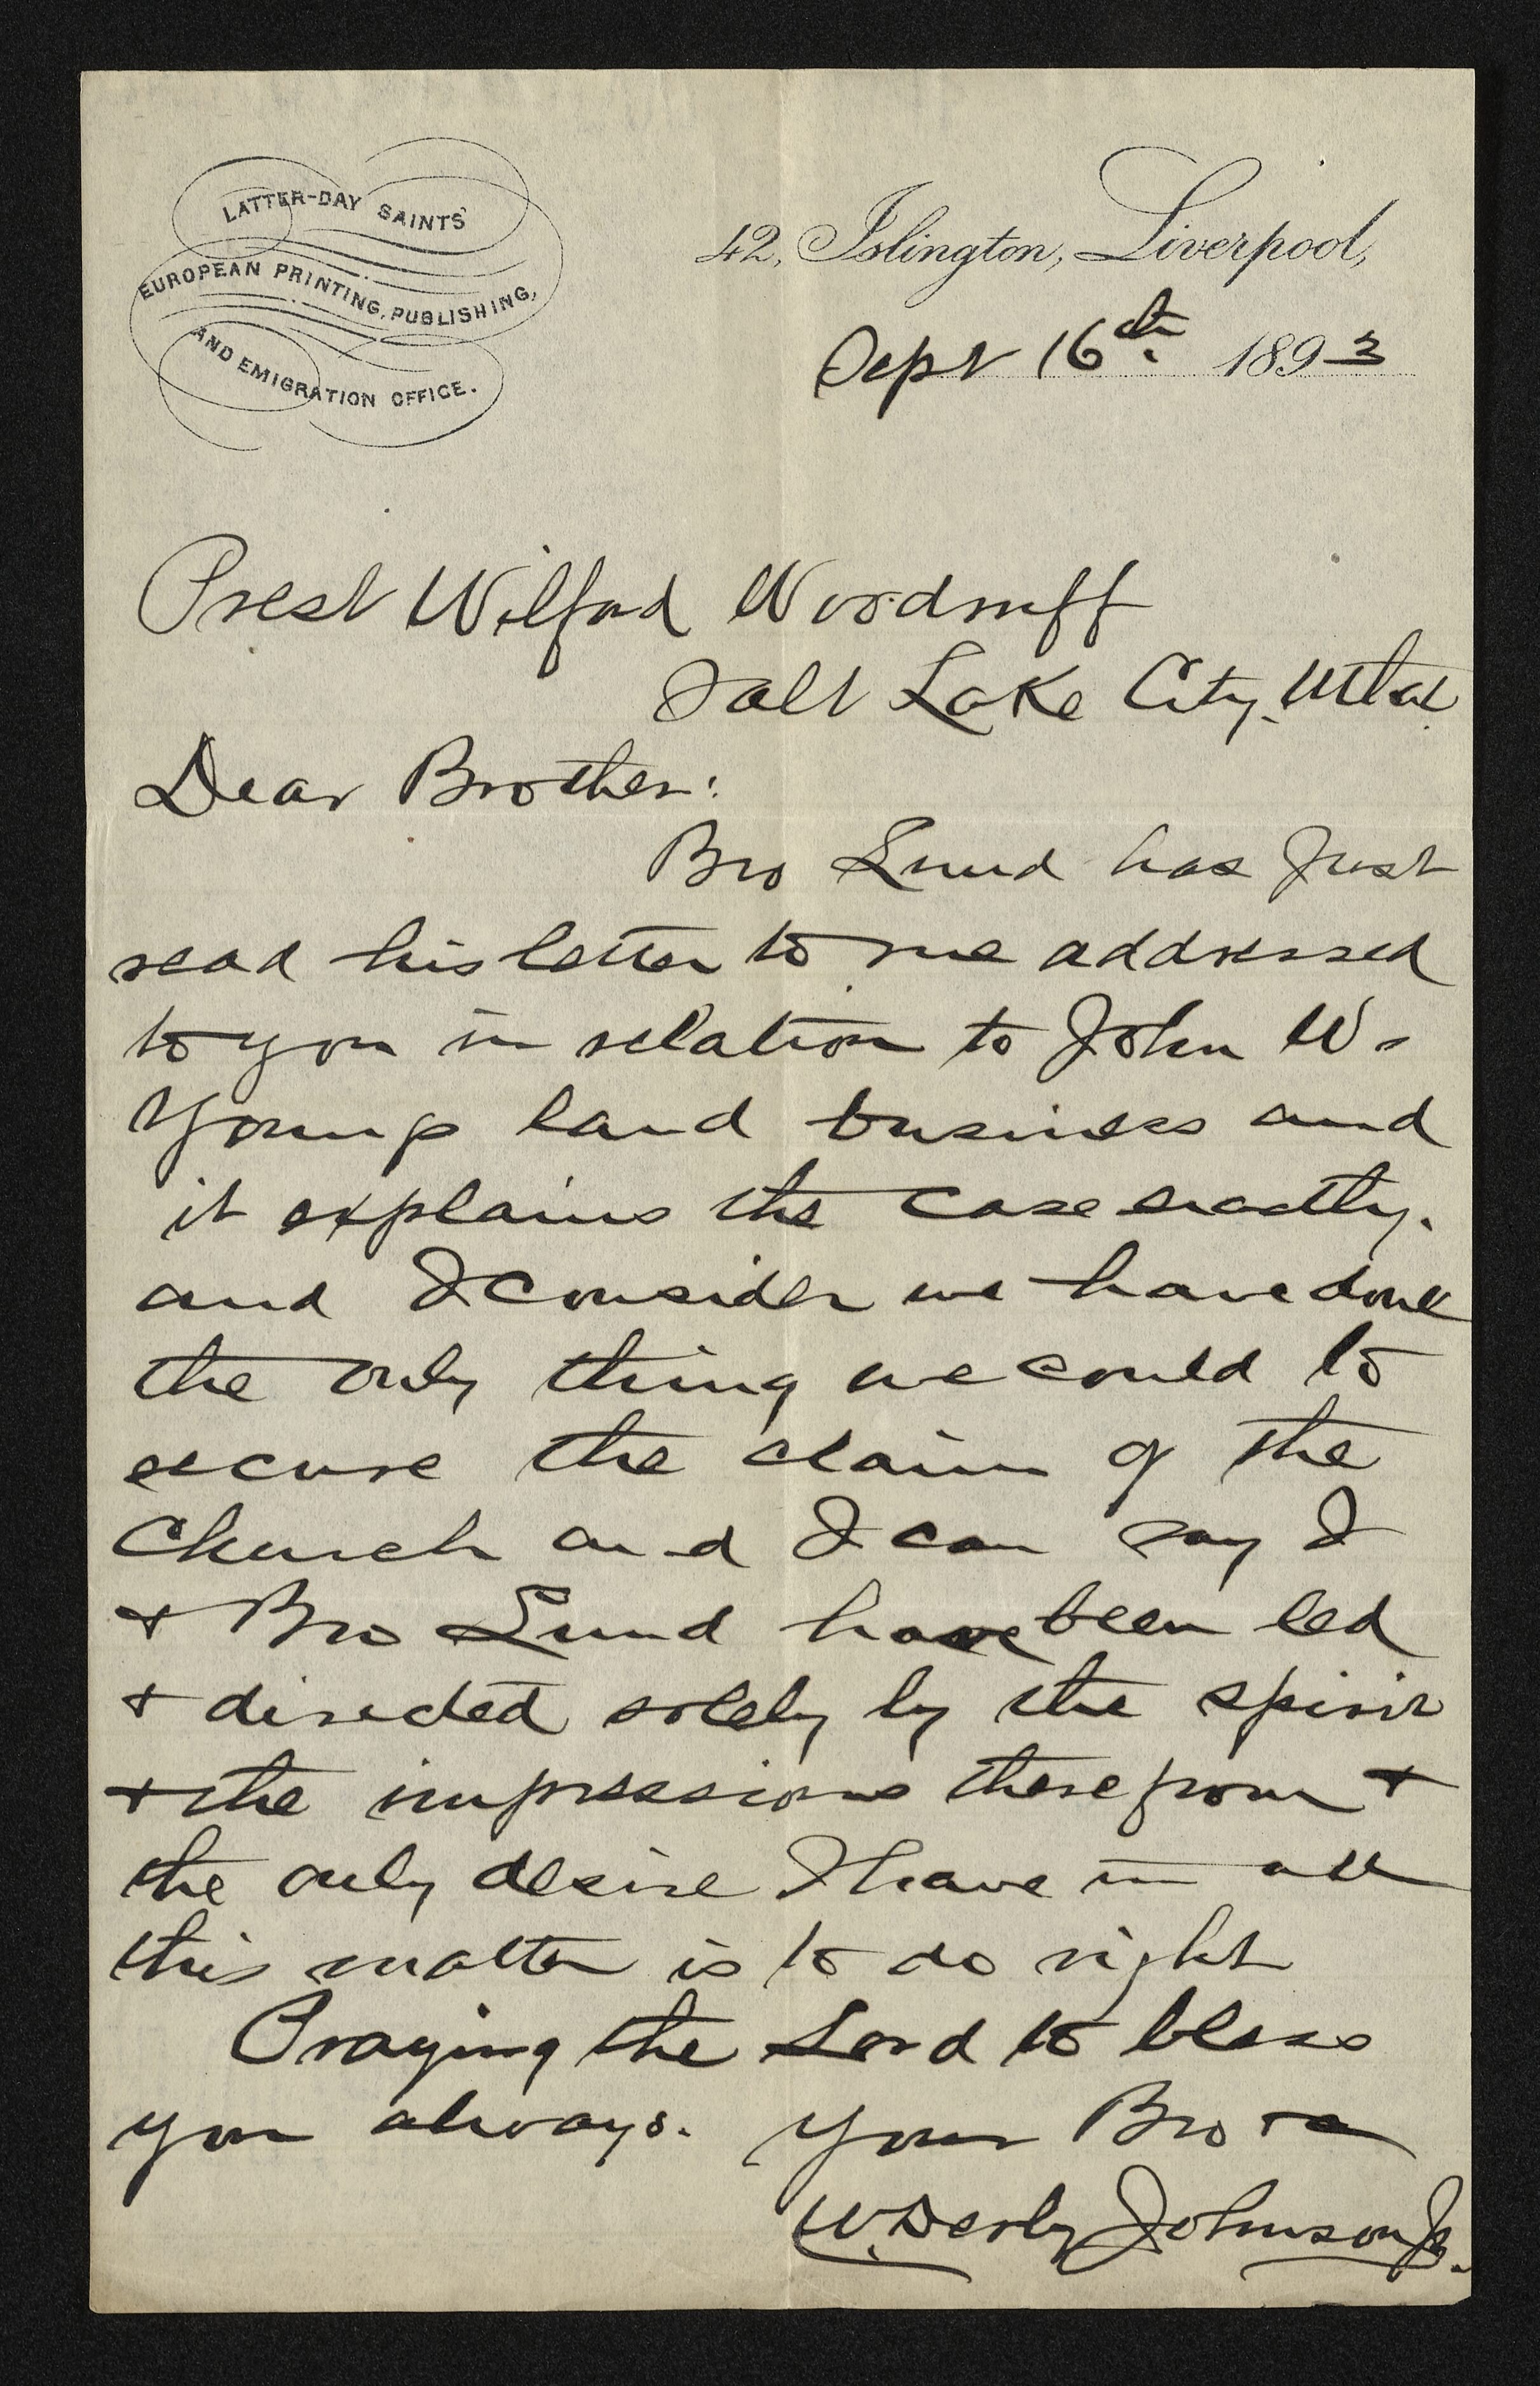 LATTER-DAY SAINTS'
EUROPEAN PRINTING, PUBLISHING,
AND EMIGRATION OFFICE.
42, Islington, Liverpool,
Sept 16th. 1893
Prest Wilford Woodruff
Salt Lake City. Utah
Dear Brother:
Bro Lund has Just
read his letter to me addressed
to you in relation to John W.
Young land business and
it explains the case exactly.
and I consider we have done
the only thing we could to
secure the claim of the
Church and I can say I
& Bro Lund have been led
& directed solely by the spirit
& the impressions therefrom &
the only desire I have in all
this matter is to do right
Praying the Lord to bless
you always. Your Bro &c
W. Derby Johnson Jr.